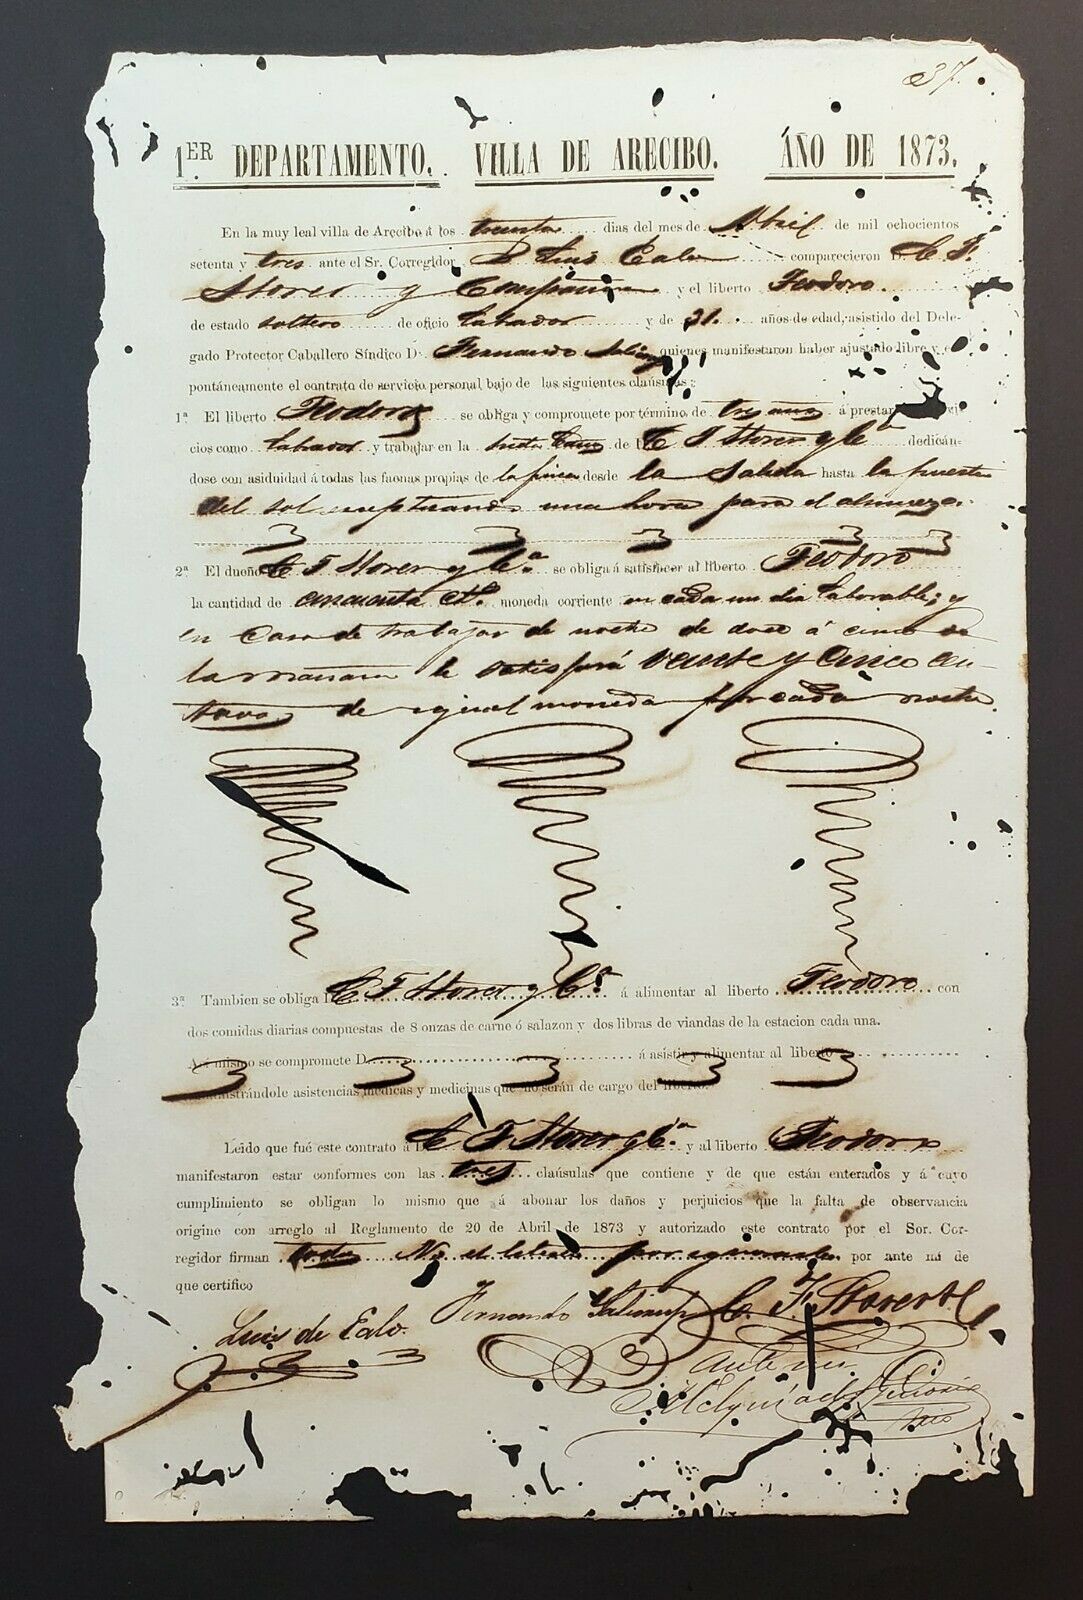 37.
1.ER DEPARTAMENTO. VILLA DE ARECIBO. AÑO DE 1873.
En la muy leal villa de Arecibo á los treinta dias del mes de Abril de mil ochocientos
setenta y tres ante el Sr. Corregidor D. Luis Ealo comparecieron D. C. F.
Storer y Compañia y el liberto Teodoro
de estado soltero de oficio labrador y de 21 años de edad, asistido del Dele-
gado Protector Caballero Síndico D. Fernando quienes manifestaron haber ajustado libre y es
pontáneamente el contrato de servicio personal bajo de las siguientes cláusulas:
1ª El liberto Teodoro se obliga y compromete por término de tres años á prestar
cios como labrador y trabajar en la de C F Storer y Cª dedicán-
dose con asiduidad á todas las faenas propias de la finca desde la salida hasta la puesta
del sol esceptuando una hora para el almuerzo.
2ª El dueño C F Storer y Cª se obliga á satisfacer al liberto Teodoro
la cantidad de cincuenta ctvs. moneda corriente en cada un dia laborable; y
en caso de trabajar de noche de doce á cinco de
la mañana le satisfará veinte y cinco cen-
tavos de igual moneda por cada noche.
3ª Tambien se obliga C F Storer y Cª á alimentar al liberto Teodoro con
dos comidas diarias compuestas de 8 onzas de carne ó salazon y dos libras de viandas de la estacion cada una.
Así mismo se compromete D. á asistir y alimentar al liberto
nistrándole asistencias médicas y medicinas que no serán de cargo del liberto.
Leido que fué este contrato á C F Storer y Cª y al liberto Teodoro
manifestaron estar conformes con las tres cláusulas que contiene y de que están enterados y á cuyo
cumplimiento se obligan lo mismo que á abonar los daños y perjuicios que la falta de observancia
origine con arreglo al Reglamento de 20 de Abril de 1873 y autorizado este contrato por el Sor. Cor-
regidor firman todos No el liberto por ignorarlo por ante mi de
que certifico
Luis de Ealo. Fernando C. F. Storer & C
Ante mi